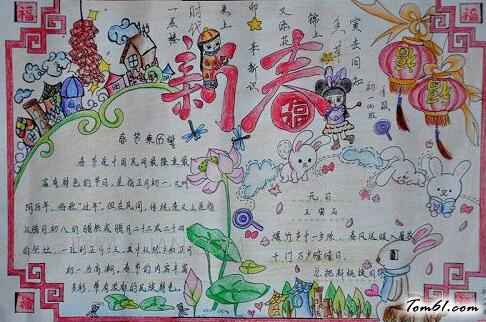 福
福
又添花
锦上
新春
福
春节来历
春节是中国民间最隆重最
富有特色的节日，是指正月初一，又叫
阴历年，俗称“过年”。但在民间，传统意义上是指
从腊月初八的腊祭或腊月二十三或二十四
的祭灶，一直到正月十五，其中以除夕和正月
初一为高潮。春节的内容丰富
多彩，带有浓郁的民族特色。
元日
王安石
爆竹声中一岁除，春风送暖入屠苏
千门万户曈曈日，
总把新桃换旧符
福
福
Tom61.com